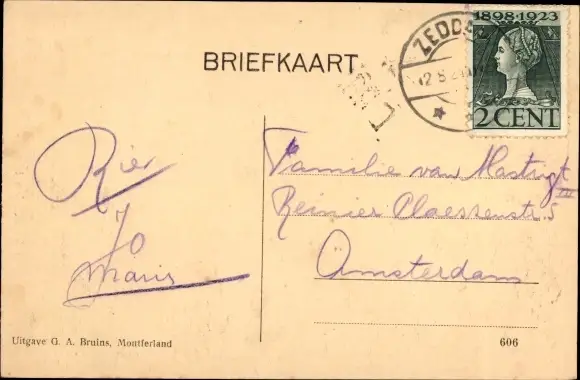 BRIEFKAART
ZEDD
12.8
1898-1923
2 CENT
Rier
Jo
Maris
Familie van Mastrigt
Reinier Claeszenstr. 5
III
Amsterdam
Uitgave G. A. Bruins, Montferland
606